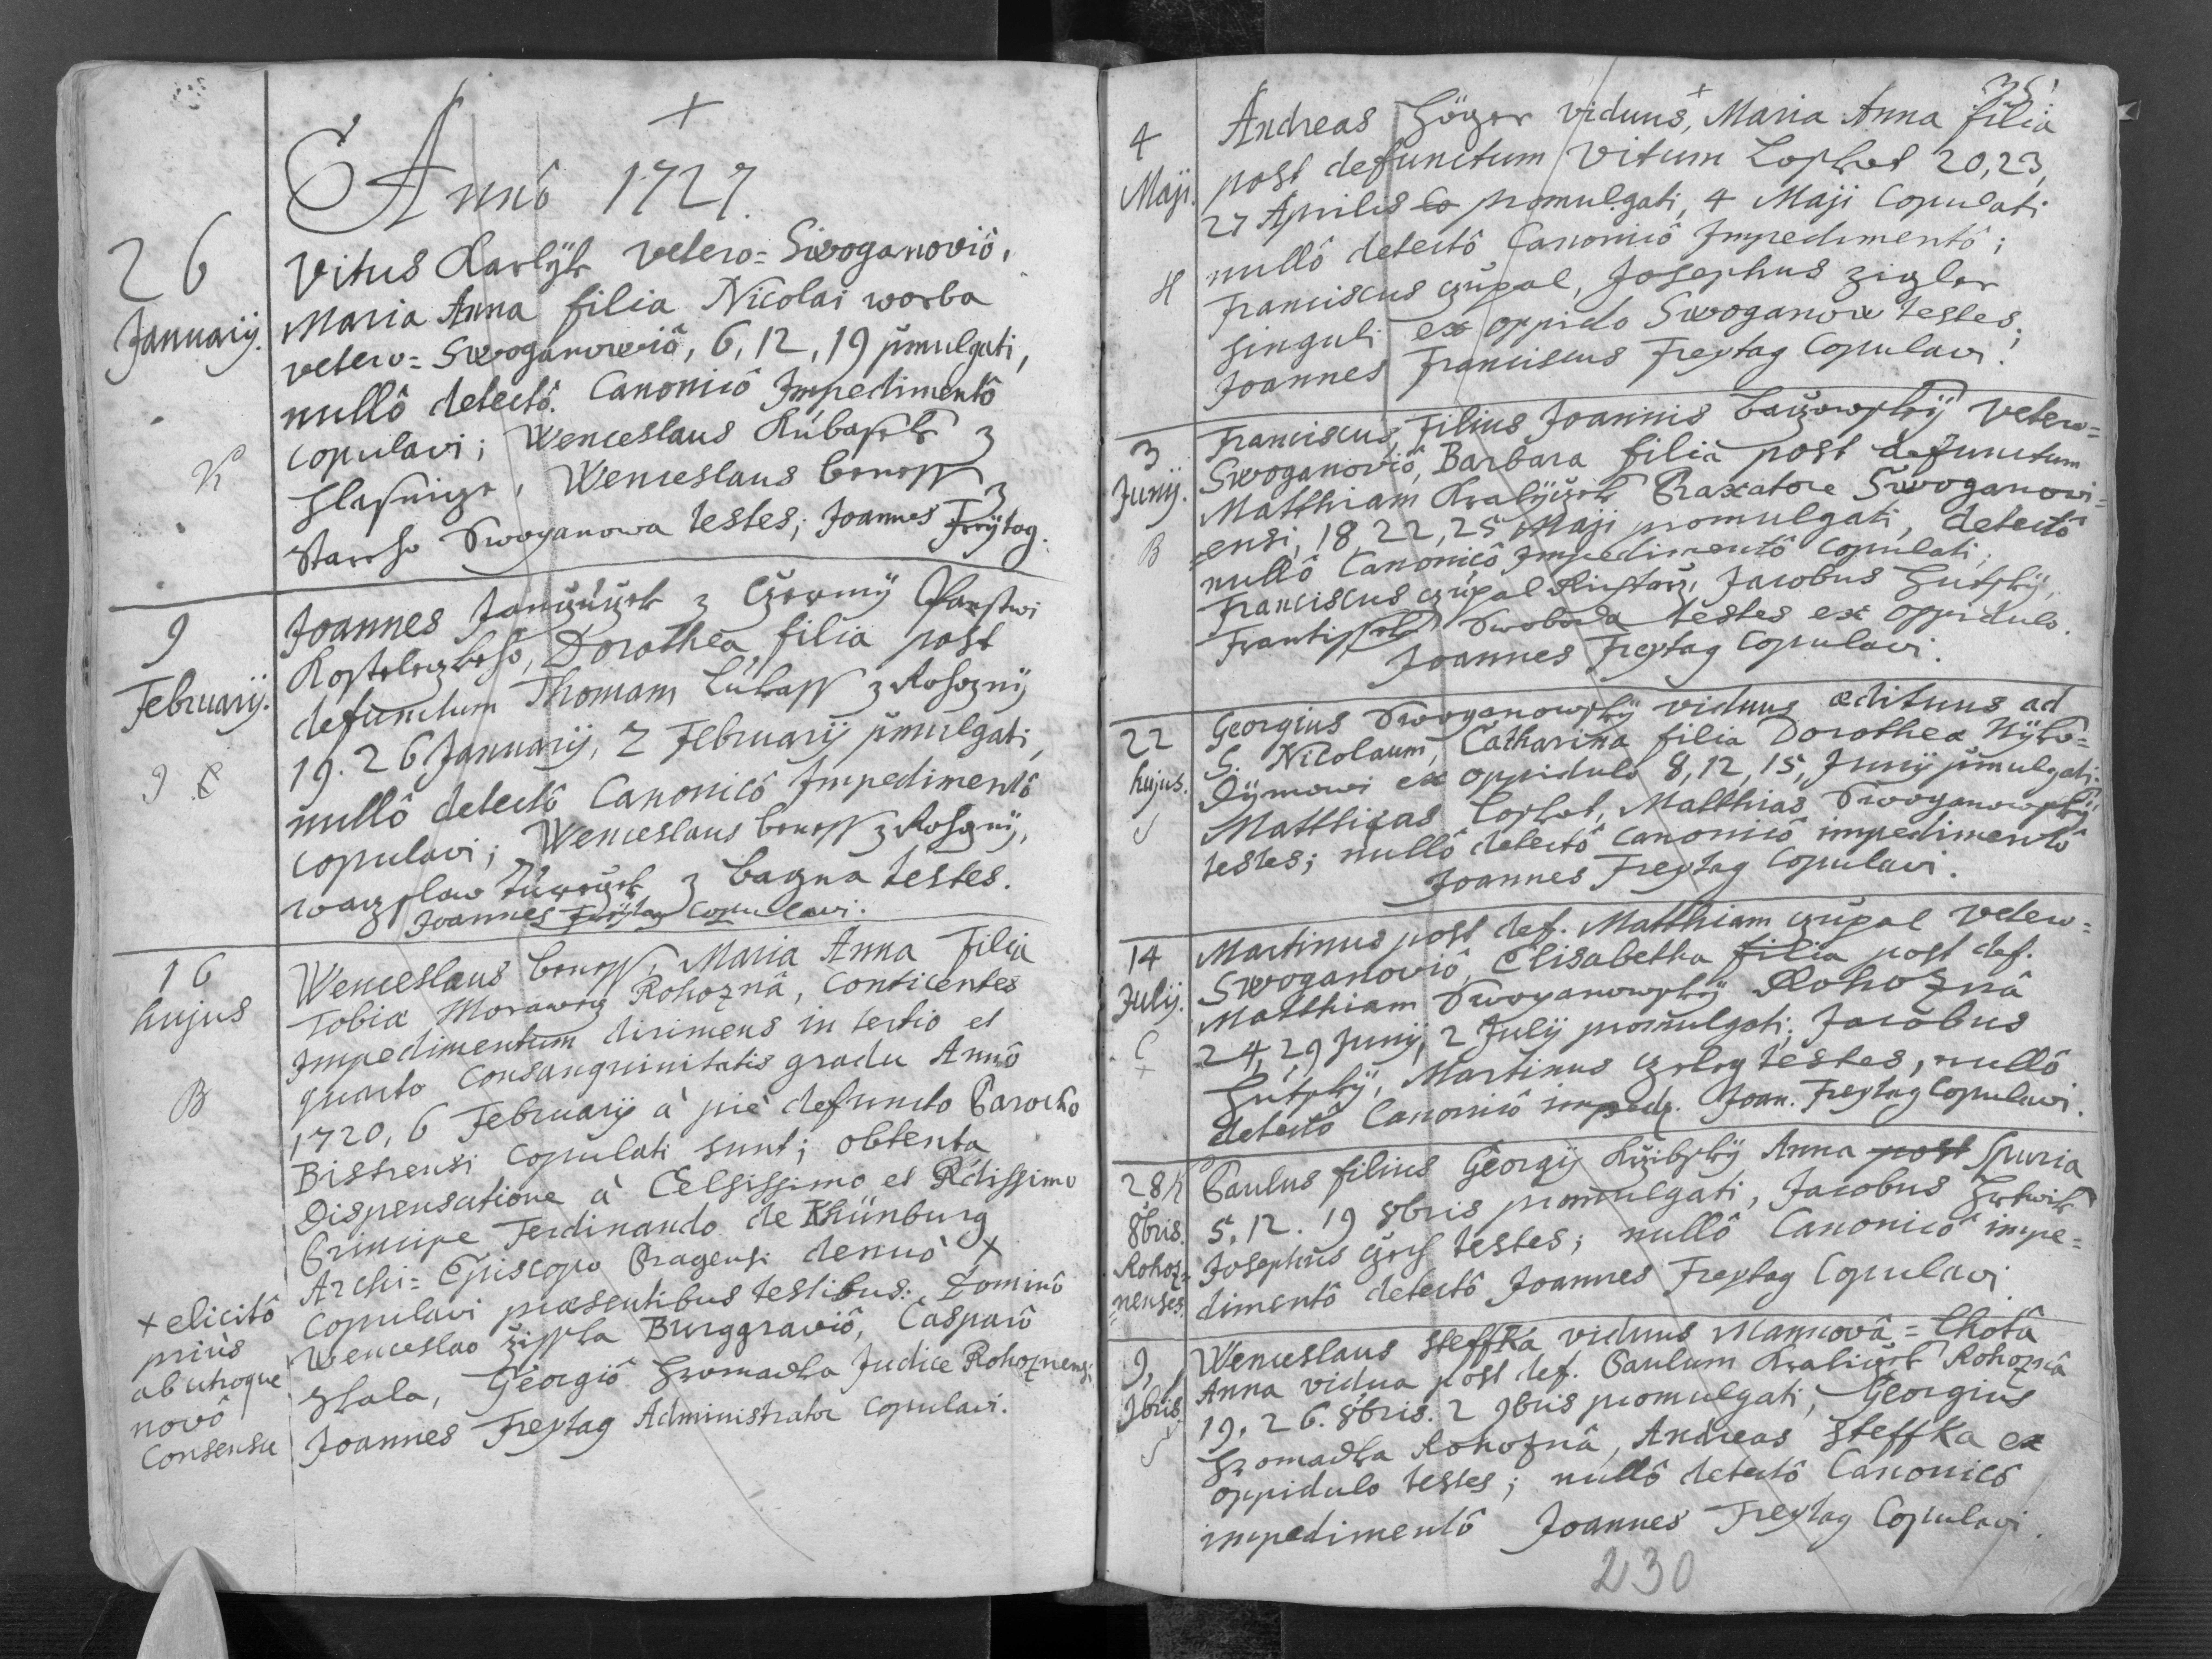 +
Annô 1727.
26
Januarij.
Vitus Karlÿk Vetero=Swoganoviô,
Maria Anna filia Nicolai worba
vetero=Swoganowiô, 6, 12, 19 pmulgati,
nullô detectô Canonicô Impedimentô
copulavi; Wenceslaus Kubassek z
K
Hlasnicze, Wenceslaus Beness z
Stareho Swoganowa testes; Joannes Freÿtag.
9
Februarij.
Joannes Janczuczek z Czerny Panstwi
Kosteleczkeho, Dorothea filia post
defunctum Thomam Lukass z Rohozny
19. 26 Januarij, 2 Februarij pmulgati,
nullô detectô Canonicô Impedimentô
copulavi; Wenceslaus Beness z Rohozny,
waczslaw z Bagna testes.
Joannes Freÿtag Copulavi.
16
hujus
B
Wenceslaus Beness, Maria Anna Filia
Tobiæ Morawecz Rohoznâ, Conticentes
Impedimentum dirimens in tertio et
quarto Consanguinitatis gradu Annô
1720, 6 Februarij à piè defuncto Parocho
Bistrensi Copulati sunt; obtenta
Dispensatione à Celsissimo et Rdissimo
Principe Ferdinando de Khünburg
Archi=Episcopo Pragensi denuò +
Copulavi præsentibus testibus: Dominô
Wenceslao žisska Burggraviô, Casparô
Skala, Georgiô Hromadka Judice Rohoznensi
Joannes Freytag Administrator Copulavi.
+ elicitô
priùs
ab utroque
novô
Consensu
35
4
Maji.
H
Andreas Höger viduus, Maria Anna filia
post defunctum Vitum Loskot 20, 23,
27 Aprilis Co promulgati, 4 Maji Copulati
nullô detectô Canonicô Impedimentô;
Franciscus czupal, Josephus zigler
singuli ex oppido Swoganow testes;
Joannes Franciscus Freytag Copulavi.
3
Junij.
B
Franciscus, Filius Joannis Baczowsky Vetero=
Swoganoviô, Barbara filia post defunctum
Matthiam Kralyczek Braxatore Swoganowi=
=ensi, 18, 22, 25 Maji promulgati, detectô
nullô Canonicô Impedimentô Copulati;
Franciscus czupal, Jacobus Hutsky,
Frantissek Swoboda testes ex oppidulo.
Joannes Freytag Copulavi.
22
hujus.
S
Georgius Swoganowsky viduus ædituus ad
S. Nicolaum, Catharina filia Dorotheæ Nyko=
Dymowi ex oppidulo 8, 12, 15, Junij pmulgati.
Matthias Loskot, Matthias Swoganowsky
testes; nullô detectô canonicô impedimentô
Joannes Freytag Copulavi.
14
Julij.
C
+
Martinus post def. Matthiam czupal Vetero=
Swoganoviô, Elisabetha filia post def.
Matthiam Swoganowsky Rohoznâ
24, 29 Junij, 2 Julij promulgati; Jacobus
Hutsky, Martinus testes, nullô
detectô Canonicô imped. Joan. Freytag Copulavi.
28
8bris.
Rohoz=
=nenses.
Paulus filius Georgij Anna post Spuria
5. 12. 19 8bris promulgati, Jacobus
Josephus czech testes; nullô Canonicô impe=
dimentô detectô Joannes Freytag Copulavi
9,
9bris.
S
Wenceslaus Steffka viduus Mamcovâ=Lhotâ
Anna vidua post def. Paulum Kraliczek Rohoznâ
19. 26. 8bris. 2 9bris promulgati, Georgius
Hromadka Rohoznâ, Andreas Steffka ex
oppidulo testes; nullô detectô Canonicô
impedimentô Joannes Freytag Copulavi.
230